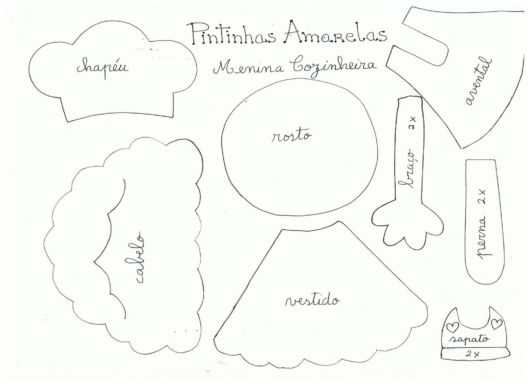 Pintinhas Amarelas
Menina Cozinheira
chapéu
avental
rosto
braço 2x
perna 2x
cabelo
vestido
sapato
2x